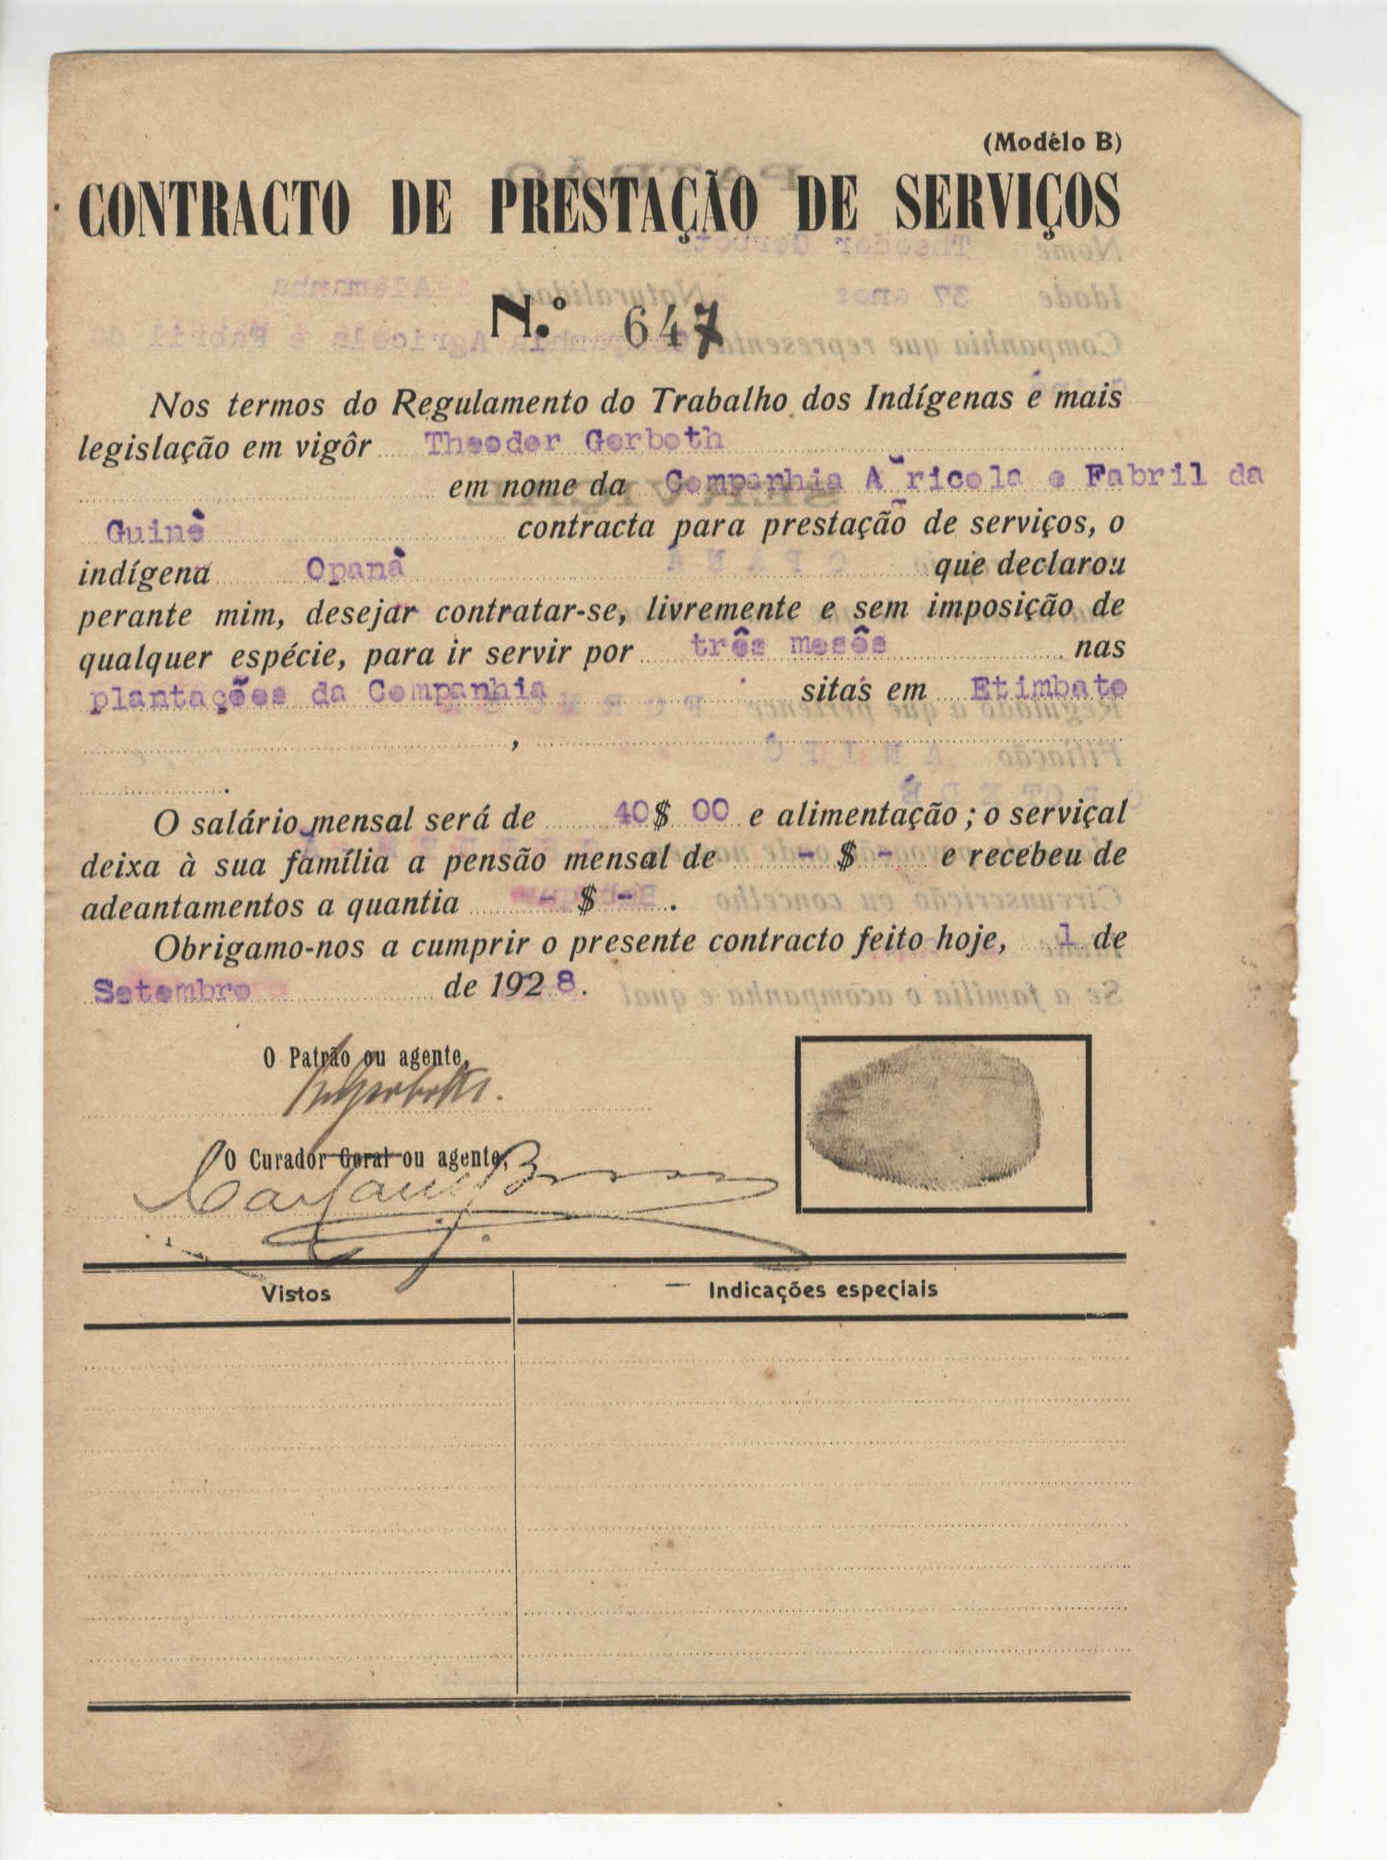 (Modêlo B)
CONTRACTO DE PRESTAÇÃO DE SERVIÇOS
N.º 647
Nos termos do Regulamento do Trabalho dos Indígenas e mais
legislação em vigôr Theodor Gerboth
em nome da Companhia Agricola e Fabril da
Guinè contracta para prestação de serviços, o
indígena Opanà que declarou
perante mim, desejar contratar-se, livremente e sem imposição de
qualquer espécie, para ir servir por três mesês nas
plantações da Companhia sitas em Etimbato
,
.
O salário mensal será de 40$ 00 e alimentação ; o serviçal
deixa à sua família a pensão mensal de - $ - e recebeu de
adeantamentos a quantia - $ - .
Obrigamo-nos a cumprir o presente contracto feito hoje, 1 de
Setembro de 1928.
O Patrão ou agente,
O Curador Geral ou agente,
Vistos Indicações especiais